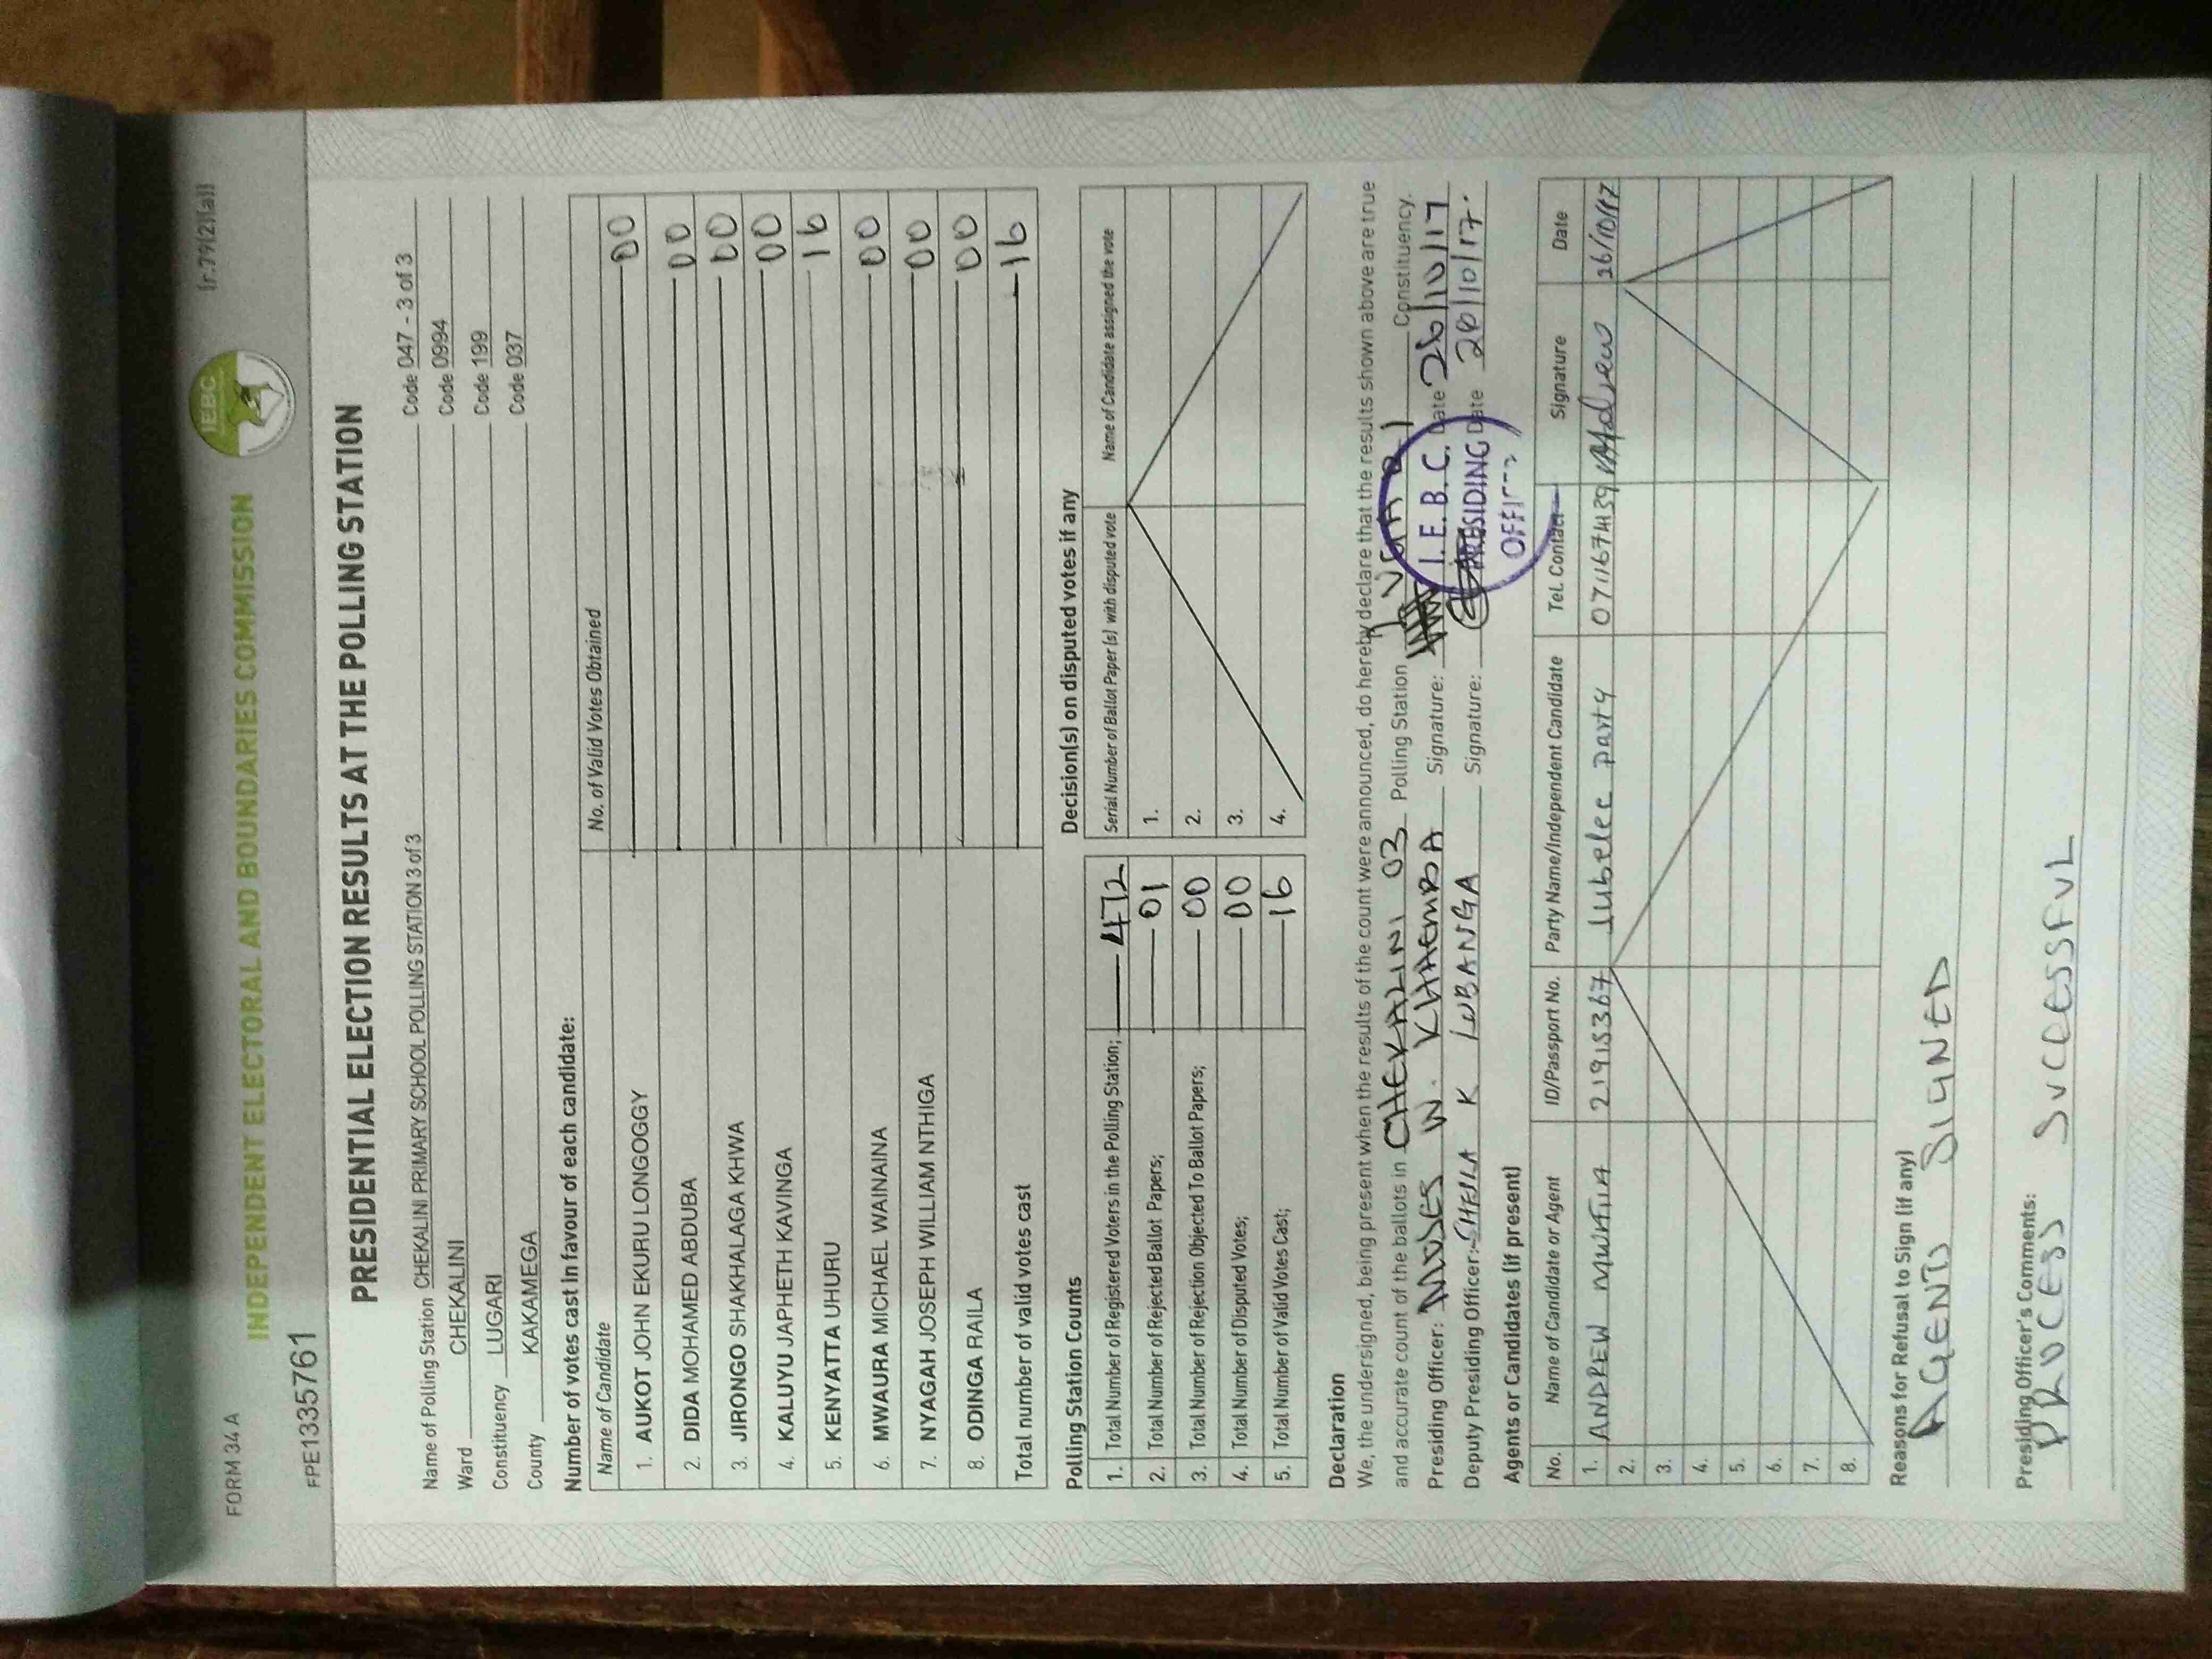 FORM 34 A
[r.79(2)(a)]
INDEPENDENT ELECTORAL AND BOUNDARIES COMMISSION
IEBC
FPE1335761
PRESIDENTIAL ELECTION RESULTS AT THE POLLING STATION
Name of Polling Station CHEKALINI PRIMARY SCHOOL POLLING STATION 3 of 3 Code 047 - 3 of 3
Ward CHEKALINI Code 0994
Constituency LUGARI Code 199
County KAKAMEGA Code 037
Number of votes cast in favour of each candidate:
Name of Candidate No. of Valid Votes Obtained
1. AUKOT JOHN EKURU LONGOGGY 00
2. DIDA MOHAMED ABDUBA 00
3. JIRONGO SHAKHALAGA KHWA 00
4. KALUYU JAPHETH KAVINGA 00
5. KENYATTA UHURU 16
6. MWAURA MICHAEL WAINAINA 00
7. NYAGAH JOSEPH WILLIAM NTHIGA 00
8. ODINGA RAILA 00
Total number of valid votes cast 16
Polling Station Counts
1. Total Number of Registered Voters in the Polling Station; 472
2. Total Number of Rejected Ballot Papers; 01
3. Total Number of Rejection Objected To Ballot Papers; 00
4. Total Number of Disputed Votes; 00
5. Total Number of Valid Votes Cast; 16
Decision(s) on disputed votes if any
Serial Number of Ballot Paper (s) with disputed vote Name of Candidate assigned the vote
1.
2.
3.
4.
Declaration
We, the undersigned, being present when the results of the count were announced, do hereby declare that the results shown above are true
and accurate count of the ballots in CHEKALINI 03 Polling Station Constituency.
Presiding Officer: MOSES W. KHAEMBA Signature: Date 26/10/17
Deputy Presiding Officer: SHEILA K LUBANGA Signature: Date 26/10/17.
I.E.B.C.
PRESIDING
OFFICER
Agents or Candidates (if present)
No. Name of Candidate or Agent ID/Passport No. Party Name/Independent Candidate Tel. Contact Signature Date
1. ANDREW MWAFIA 21915367 Jubelee party 0711674139 Andrew 26/10/17
2.
3.
4.
5.
6.
7.
8.
Reasons for Refusal to Sign (if any)
AGENTS SIGNED
Presiding Officer's Comments:
PROCESS SUCCESSFUL